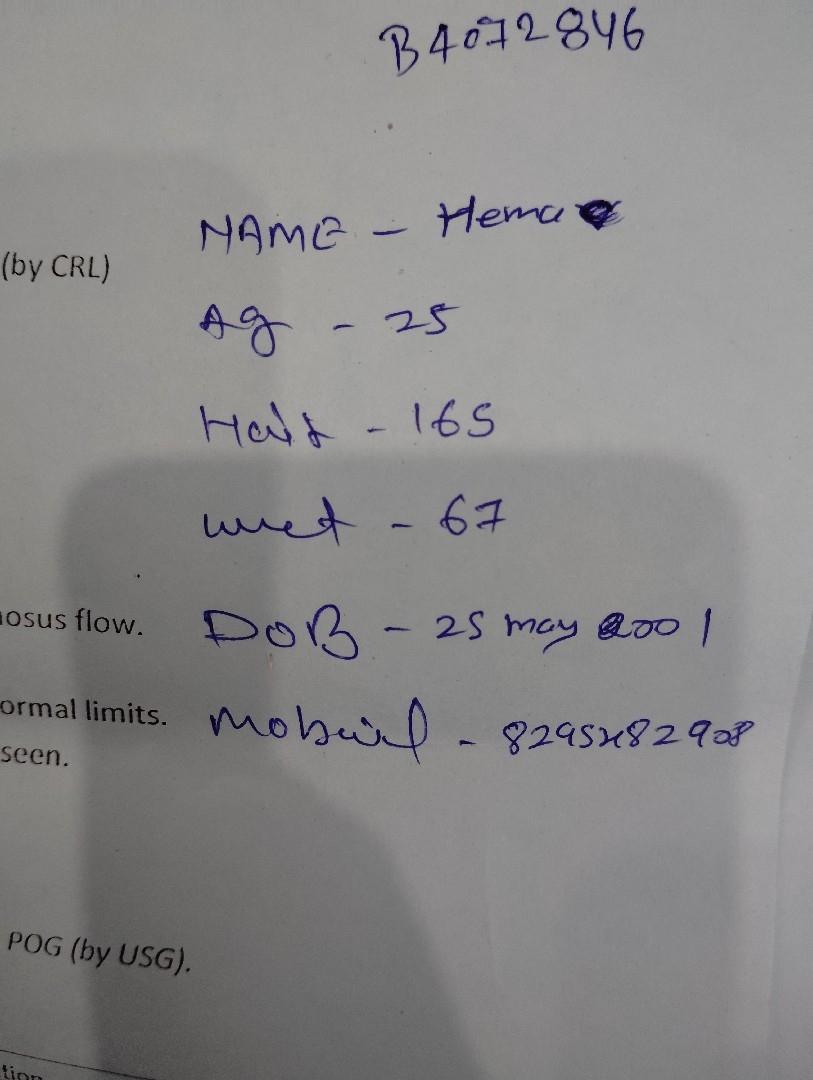 B4072846
NAME - Hema
(by CRL)
Ag - 25
Hait - 165
wet - 67
nosus flow.
DOB - 25 may 2001
ormal limits.
Mobail -
seen.
POG (by USG).
tion